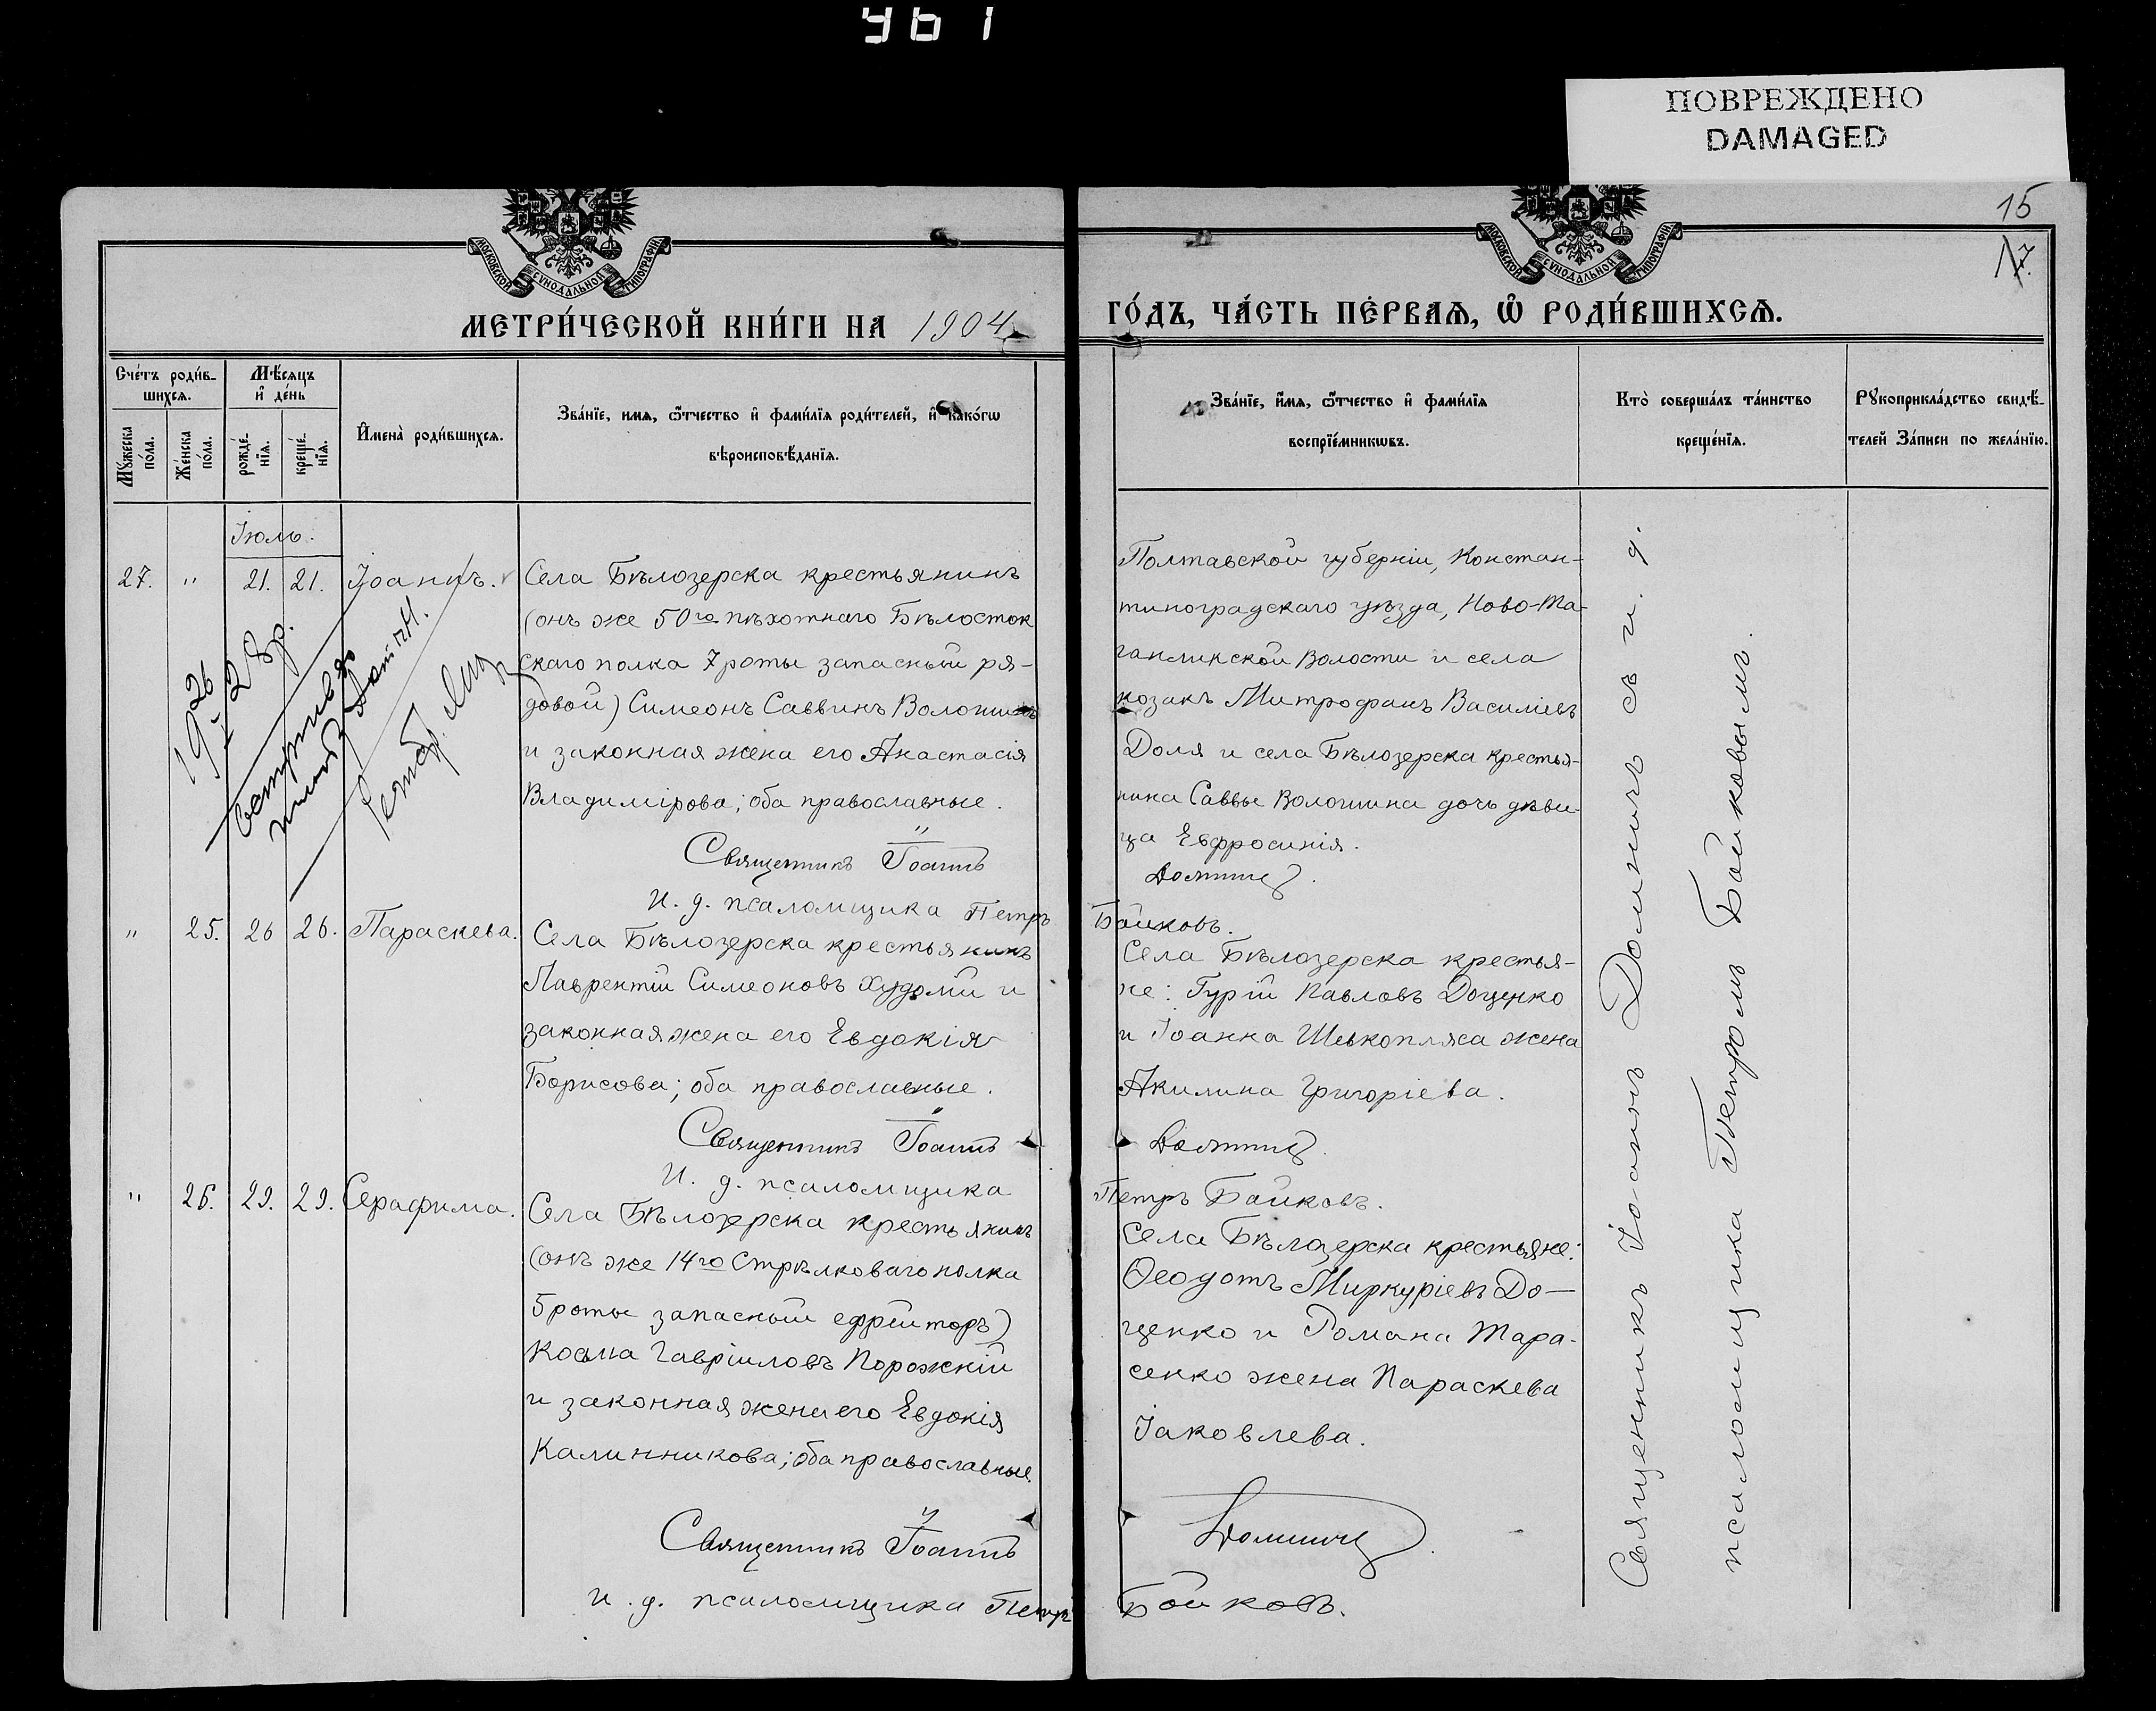 961
ПОВРЕЖДЕНО
DAMAGED
15
17.
МОСКОВСКОЙ СѴНОДАЛЬНОЙ ТИПОГРАФІИ
МОСКОВСКОЙ СѴНОДАЛЬНОЙ ТИПОГРАФІИ
МЕТРИ́ЧЕСКОЙ КНИ́ГИ НА 1904
ГО́ДЪ, ЧА́СТЬ ПЕ́РВАѦ, Ѽ РОДИ́ВШИХСѦ.
Сче́тъ роди́в-
шихсѧ.
Мꙋ́жеска по́ла.
Же́нска по́ла.
Мѣ́сѧцъ
и҆ де́нь
рожде́-
нїѧ.
креще́-
нїѧ.
И҆мена̀ роди́вшихсѧ.
Зва́нїе, имѧ, ѻ҆́тчество и҆ фами́лїѧ роди́телей, и҆ како́гѡ
вѣроисповѣ́данїѧ.
Зва́нїе, и҆́мѧ, ѻ҆́тчество и҆ фами́лїѧ
воспрїе́мникѡвъ.
Кто̀ соверша́лъ та́инство
креще́нїѧ.
Рꙋкоприкла́дство свидѣ́-
телей За́писи по жела́нїю.
Іюль.
27. " 21. 21. Іоаннъ.
Села Бѣлозерска крестьянинъ
(онъ же 50го пѣхотнаго Бѣлосток
скаго полка 7 роты запасный ря-
довой) Симеонъ Саввинъ Волошинъ
и законная жена его Анастасія
Владимірова; оба православные.
Священникъ Іоаннъ
И. д. псаломщика Петръ
Полтавской губерніи, Констан-
тиноградскаго уѣзда, Ново-Та-
ганликской Волости и села
козакъ Митрофанъ Василіевъ
Доля и села Бѣлозерска крестья-
нина Саввы Волошина дочь дѣви-
ца Евфросинія.
Долинич.
Байковъ.
1926
" 25. 26 26. Параскева.
Села Бѣлозерска крестьянинъ
Лаврентій Симеоновъ Худомй и
законная жена его Евдокія
Борисова; оба православные.
Священникъ Іоаннъ
И. д. псаломщика
Села Бѣлозерска крестья-
не: Гурій Павловъ Доценко
и Іоанна Шевкопляса жена
Акилина Григоріева.
Долинич.
Петръ Байковъ.
" 26. 29. 29. Серафима.
Села Бѣлозерска крестьянинъ
(онъ же 14го Стрѣлковаго полка
5 роты запасный ефрейторъ)
Косма Гавріиловъ Порожній
и законная жена его Евдокія
Калинникова; оба православные.
Священникъ Іоаннъ
и. д. псаломщика Петръ
Села Бѣлозерска крестьяне:
Ѳеодотъ Миркуріевъ До-
ценко и Романа Тара-
сенко жена Параскева
Іаковлева.
Долинич.
Байковъ.
Священникъ Іоаннъ Долиничъ съ и. д.
псаломщика Петромъ Байковымъ.